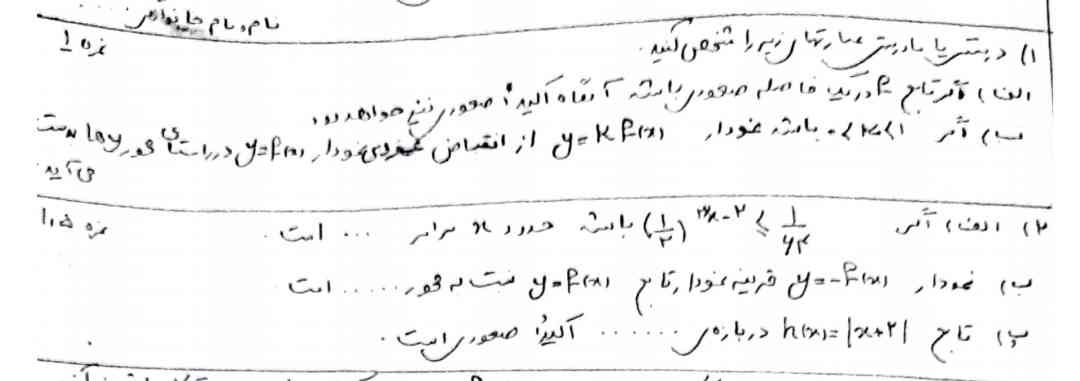 نام و نام خانوادگی .....
۱) درستی یا نادرستی عبارتهای زیر را مشخص کنید. نمره ۱
الف) اگر تابع f در یک فاصله صعودی باشد آنگاه اکیداً صعودی نیز خواهد بود.
ب) اگر 0<k<1 باشد، نمودار y=kf(x) از انقباض نمودار y=f(x) در راستای محور yها بدست
می آید
۲) الف) اگر (1/2)^{3x-2} ≤ 1/64 باشد حدود x برابر ... است. نمره ۱،۵
ب) نمودار y=-f(x) قرینه نمودار تابع y=f(x) نسبت به محور ...... است
پ) تابع h(x)=|x+2| در بازه‌ی ....... اکیداً صعودی است.